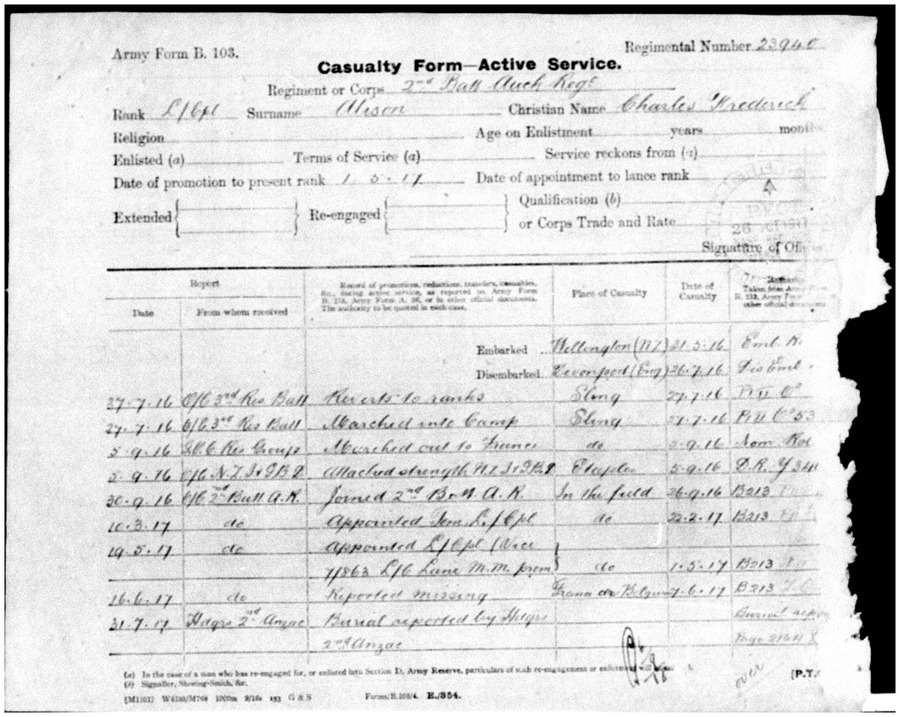 Army Form B. 103. Regimental Number 23940
Casualty Form—Active Service.
Regiment or Corps 2nd Batt Auck Regt
Rank L/Cpl Surname Alison Christian Name Charles Frederick
Religion Age on Enlistment years months
Enlisted (a) Terms of Service (a) Service reckons from (a)
Date of promotion to present rank 1.5.17 Date of appointment to lance rank
Extended Re-engaged Qualification (b)
or Corps Trade and Rate
26 OCT 1917
Signature of
Report Record of promotions, reductions, transfers, casualties, &c., during active service, as reported on Army Form B. 213, Army Form A. 36, or in other official documents. The authority to be quoted in each case. Place of Casualty Date of Casualty Remarks Taken from Army Form B. 213, Army Form other official documents
Date From whom received
Embarked Wellington (NZ) 21.5.16 Emb. R.
Disembarked Devonport (Eng) 26.7.16
27.7.16 O/C 3rd Res Batt Reverts to ranks Sling 27.7.16
27.7.16 O/C 3rd Res Batt Marched into Camp Sling 27.7.16 53
5.9.16 Res Group Marched out to France do 5.9.16 Nom Rol
5.9.16 O/C N.Z.I & G.B.D Attached strength NZ I & G B D Etaples 5.9.16 D.R.
30.9.16 O/C 2nd Batt A.R. Joined 2nd Batt A.R. In the field 26.9.16 B213
10.3.17 do Appointed Tem. L/Cpl do 22.2.17 B213
19.5.17 do Appointed L/Cpl (Vice
7/863 L/C Lane M.M. prom) do 1.5.17 B213
16.6.17 do Reported missing France or Belgium 7.6.17 B213
31.7.17 Hdqrs 2nd Anzac Burial reported by Hdqrs Burial report
2nd Anzac Page
over
(a) In the case of a man who has re-engaged for, or enlisted into Section D, Army Reserve, particulars of such re-engagement or enlistment
[P.T.
(b) Signaller, Shoeing-Smith, &c.
Forms/B.103/4. E./354.